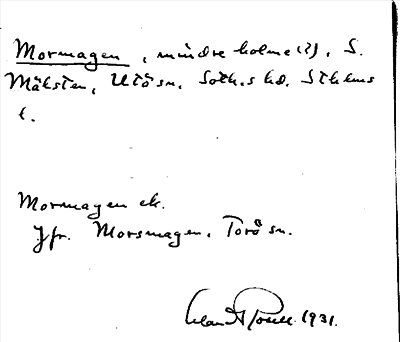 Mormagen, mindre holme(?), S.
Mälsten, Utö sn. Soth.s hd. Sthlms
l.
Mormagen ek.
Jfr. Morsmagen, Torö sn.
1931.